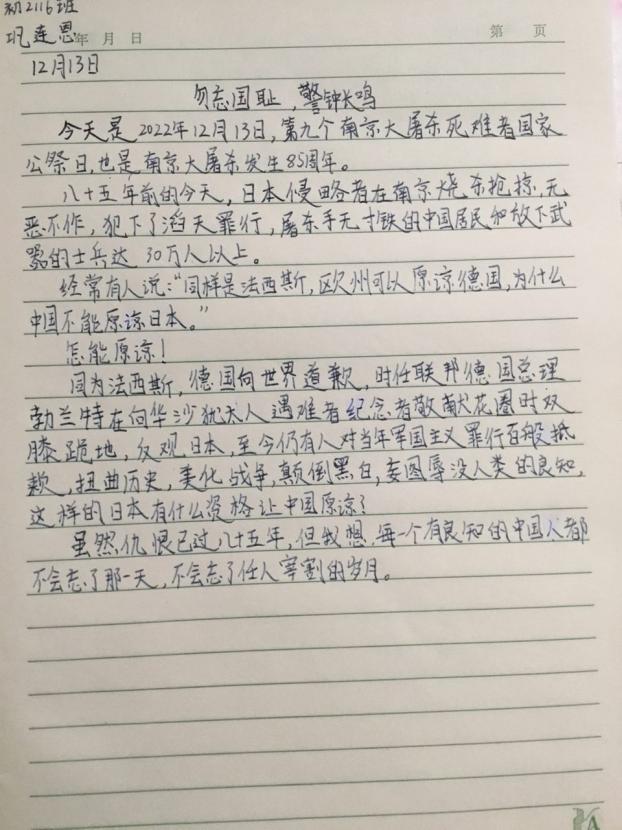 初2116班
巩连恩
年 月 日
第 页
12月13日
勿忘国耻,警钟长鸣
今天是2022年12月13日,第九个南京大屠杀死难者国家
公祭日,也是南京大屠杀发生85周年。
八十五年前的今天,日本侵略者在南京烧杀抢掠,无
恶不作,犯下了滔天罪行,屠杀手无寸铁的中国居民和放下武
器的士兵达30万人以上。
经常有人说:“同样是法西斯,欧州可以原谅德国,为什么
中国不能原谅日本。”
怎能原谅!
同为法西斯,德国向世界道歉,时任联邦德国总理
勃兰特在向华沙犹太人遇难者纪念者敬献花圈时双
膝跪地,反观日本,至今仍有人对当年军国主义罪行百般抵
赖,扭曲历史,美化战争,颠倒黑白,妄图辱没人类的良知,
这样的日本有什么资格让中国原谅?
虽然仇恨已过八十五年,但我想,每一个有良知的中国人都
不会忘了那一天,不会忘了任人宰割的岁月。